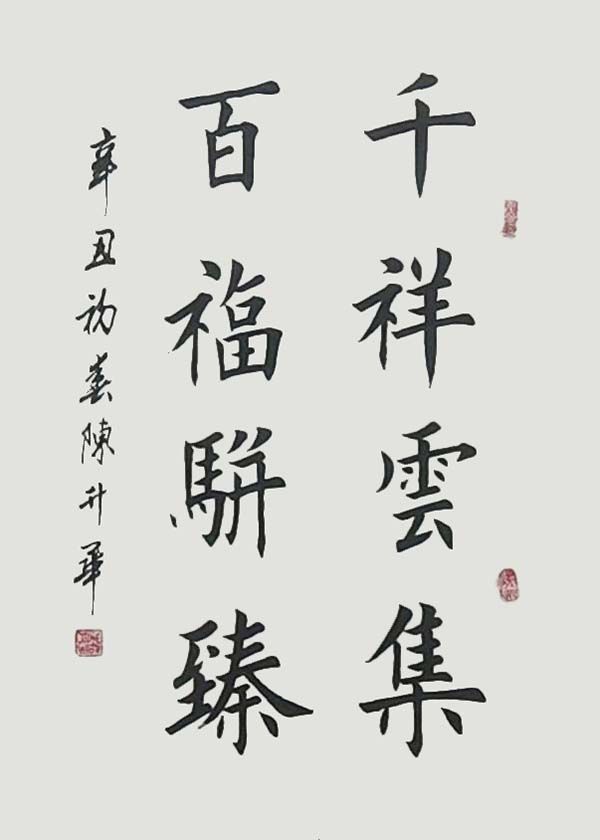 千祥雲集
百福駢臻
辛丑初春陳升華